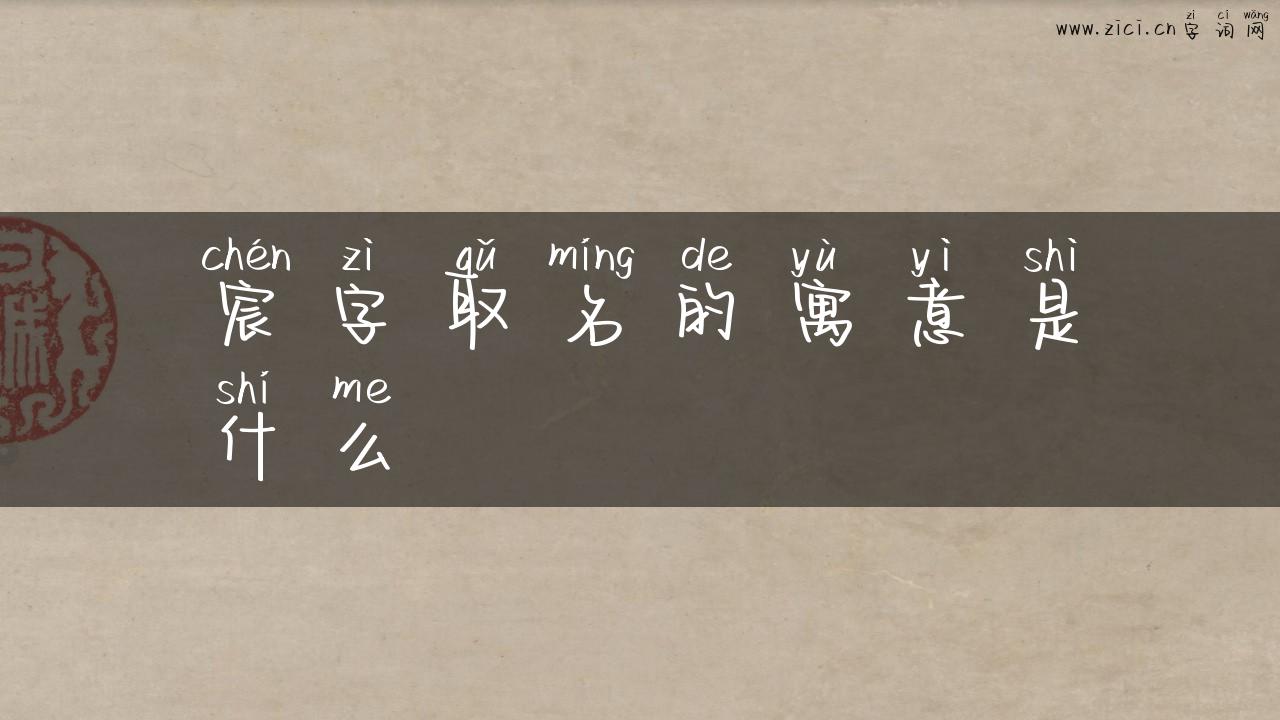 zì cí wǎng
www.zici.cn 字词网
chén zì qǔ míng de yù yì shì
宸字取名的寓意是
shí me
什么